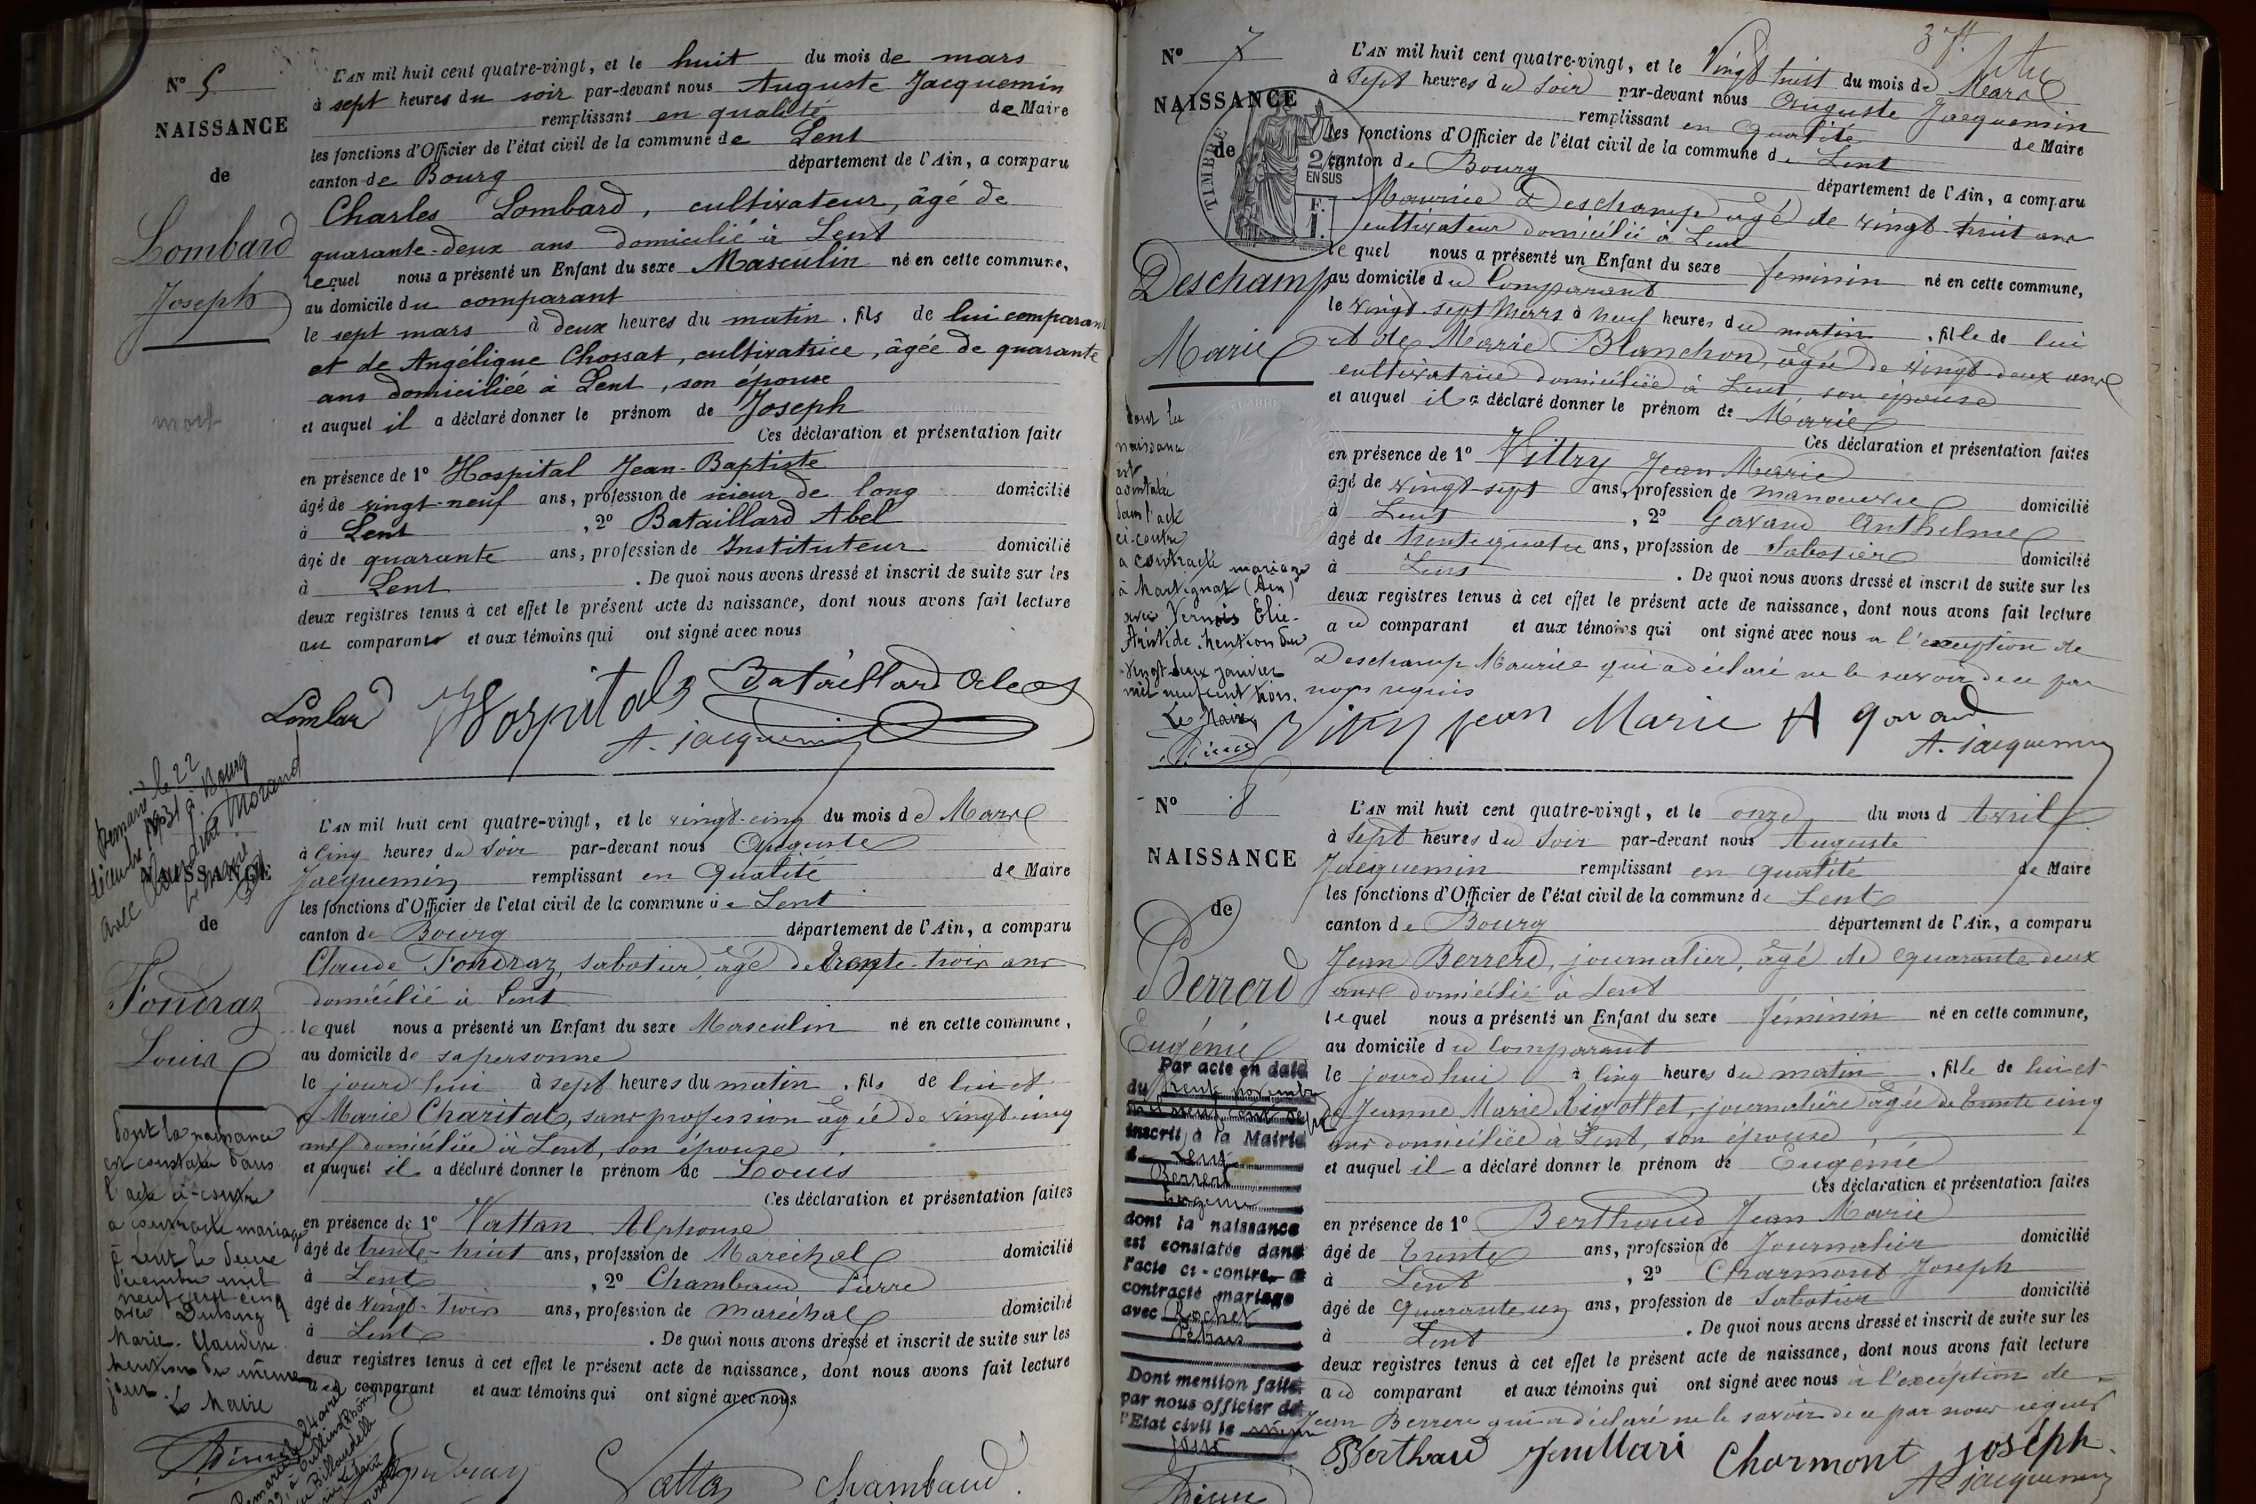 N° 5
NAISSANCE
de
Lombard
Joseph
mort
L'AN mil huit cent quatre-vingt, et le huit du mois de mars
à sept heures du soir par-devant nous Auguste Jacquemin
remplissant en qualité de Maire
les fonctions d'Officier de l'état civil de la commune de Lent
canton de Bourg département de l'Ain, a comparu
Charles Lombard, cultivateur, âgé de
quarante-deux ans domicilié à Lent
lequel nous a présenté un Enfant du sexe Masculin né en cette commune,
au domicile du comparant
le sept mars à deux heures du matin, fils de lui comparant
et de Angélique Chossat, cultivatrice, âgée de quarante
ans domiciliée à Lent, son épouse
et auquel il a déclaré donner le prénom de Joseph
Ces déclaration et présentation faites
en présence de 1° Hospital Jean-Baptiste
âgé de vingt-neuf ans, profession de scieur de long domicilié
à Lent, 2° Bataillard Abel
âgé de quarante ans, profession de Instituteur domicilié
à Lent. De quoi nous avons dressé et inscrit de suite sur les
deux registres tenus à cet effet le présent acte de naissance, dont nous avons fait lecture
au comparant et aux témoins qui ont signé avec nous
Lombard Hospital Bataillard Abel
A. Jacquemin
Remarié le 22
décembre 1931 à Bourg
avec Morand
Le Maire
NAISSANCE
de
Fondraz
Louis
dont la naissance
est constatée dans
l'acte ci-contre
a contracté mariage
à Lent le deux
décembre mil
neuf cent cinq
avec Dubourg
Marie-Claudine
Mention du même
jour
Le Maire
L'AN mil huit cent quatre-vingt, et le vingt-cinq du mois de Mars
à cinq heures du Soir par-devant nous Auguste
Jacquemin remplissant en Qualité de Maire
les fonctions d'Officier de l'état civil de la commune de Lent
canton de Bourg département de l'Ain, a comparu
Claude Fondraz, Sabotier, âgé de trente-trois ans
domicilié à Lent
lequel nous a présenté un Enfant du sexe Masculin né en cette commune,
au domicile de sa personne
le jourd'hui à sept heures du matin, fils de lui et
de Marie Charital, sans profession âgée de vingt-cinq
ans domiciliée à Lent, son épouse
et auquel il a déclaré donner le prénom de Louis
Ces déclaration et présentation faites
en présence de 1° Vattan Alphonse
âgé de trente-huit ans, profession de Maréchal domicilié
à Lent, 2° Chambaud Pierre
âgé de vingt-trois ans, profession de maréchal domicilié
à Lent. De quoi nous avons dressé et inscrit de suite sur les
deux registres tenus à cet effet le présent acte de naissance, dont nous avons fait lecture
au comparant et aux témoins qui ont signé avec nous
Chambaud
N° 7
NAISSANCE
de
TIMBRE
2/10
EN SUS
F.
1.
Deschamp
Marie
dont la
naissance
est
constatée
dans l'acte
ci-contre
a contracté mariage
à Martignat (Ain)
avec Vernois Elie-
Aristide. Mention du
vingt-deux janvier
mil neuf cent trois.
Le Maire
L'AN mil huit cent quatre-vingt, et le Vingt huit du mois de Mars
à Sept heures du Soir par-devant nous Auguste Jacquemin
remplissant en Qualité de Maire
les fonctions d'Officier de l'état civil de la commune de Lent
canton de Bourg département de l'Ain, a comparu
Maurice Deschamp âgé de vingt-huit ans
cultivateur domicilié à Lent
lequel nous a présenté un Enfant du sexe féminin né en cette commune,
au domicile du Comparant
le vingt-sept Mars à Neuf heures du matin, fille de lui
et de Marie Blanchon, âgée de vingt-deux ans
cultivatrice domiciliée à Lent son épouse
et auquel il a déclaré donner le prénom de Marie
Ces déclaration et présentation faites
en présence de 1° Vittry Jean Marie
âgé de vingt-sept ans, profession de manoeuvre domicilié
à Lent, 2° Gavand Anthelme
âgé de trente quatre ans, profession de Sabotier domicilié
à Lent. De quoi nous avons dressé et inscrit de suite sur les
deux registres tenus à cet effet le présent acte de naissance, dont nous avons fait lecture
au comparant et aux témoins qui ont signé avec nous à l'exception de
Deschamp Maurice qui a déclaré ne le savoir de ce par
nous requis
Vitry jean Marie A gavand
A. Jacquemin
N° 8
NAISSANCE
de
Berrerd
Eugénie
Par acte en date
du trente novembre
mil neuf cent
inscrit à la Mairie
d Lent
Berrerd
Eugénie
dont la naissance
est constatée dans
l'acte ci-contre a
contracté mariage
avec Rochet
Pétrus
Dont mention faite
par nous officier de
l'Etat civil le même
jour
L'AN mil huit cent quatre-vingt, et le onze du mois d Avril
à Sept heures du Soir par-devant nous Auguste
Jacquemin remplissant en qualité de Maire
les fonctions d'Officier de l'état civil de la commune de Lent
canton de Bourg département de l'Ain, a comparu
Jean Berrerd, journalier, âgé de quarante deux
ans domicilié à Lent
lequel nous a présenté un Enfant du sexe féminin né en cette commune,
au domicile du Comparant
le jourd'hui à cinq heures du matin, fille de lui et
de Jeanne Marie Rivollet, journalière âgée de trente cinq
ans domiciliée à Lent, son épouse
et auquel il a déclaré donner le prénom de Eugénie
Ces déclaration et présentation faites
en présence de 1° Berthaud Jean Marie
âgé de trente ans, profession de Journalier domicilié
à Lent, 2° Charmont Joseph
âgé de Quarante un ans, profession de Sabotier domicilié
à Lent. De quoi nous avons dressé et inscrit de suite sur les
deux registres tenus à cet effet le présent acte de naissance, dont nous avons fait lecture
au comparant et aux témoins qui ont signé avec nous à l'exception de
Jean Berrerd qui a déclaré ne le savoir de ce par nous requis
Charmont joseph
A. Jacquemin